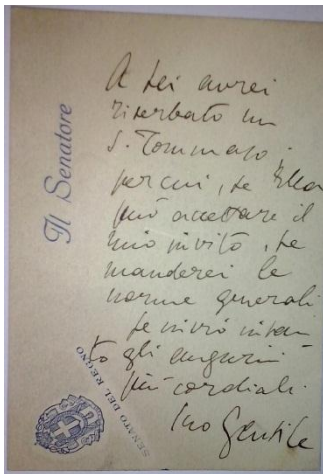 Il Senatore
SENATO DEL REGNO
A Lei avrei
riserbato un
S. Tommaso;
per cui, se Ella
può accettare il
mio invito, Le
manderei le
norme generali
Le invio intan
to gli auguri
più cordiali
Suo Gentile